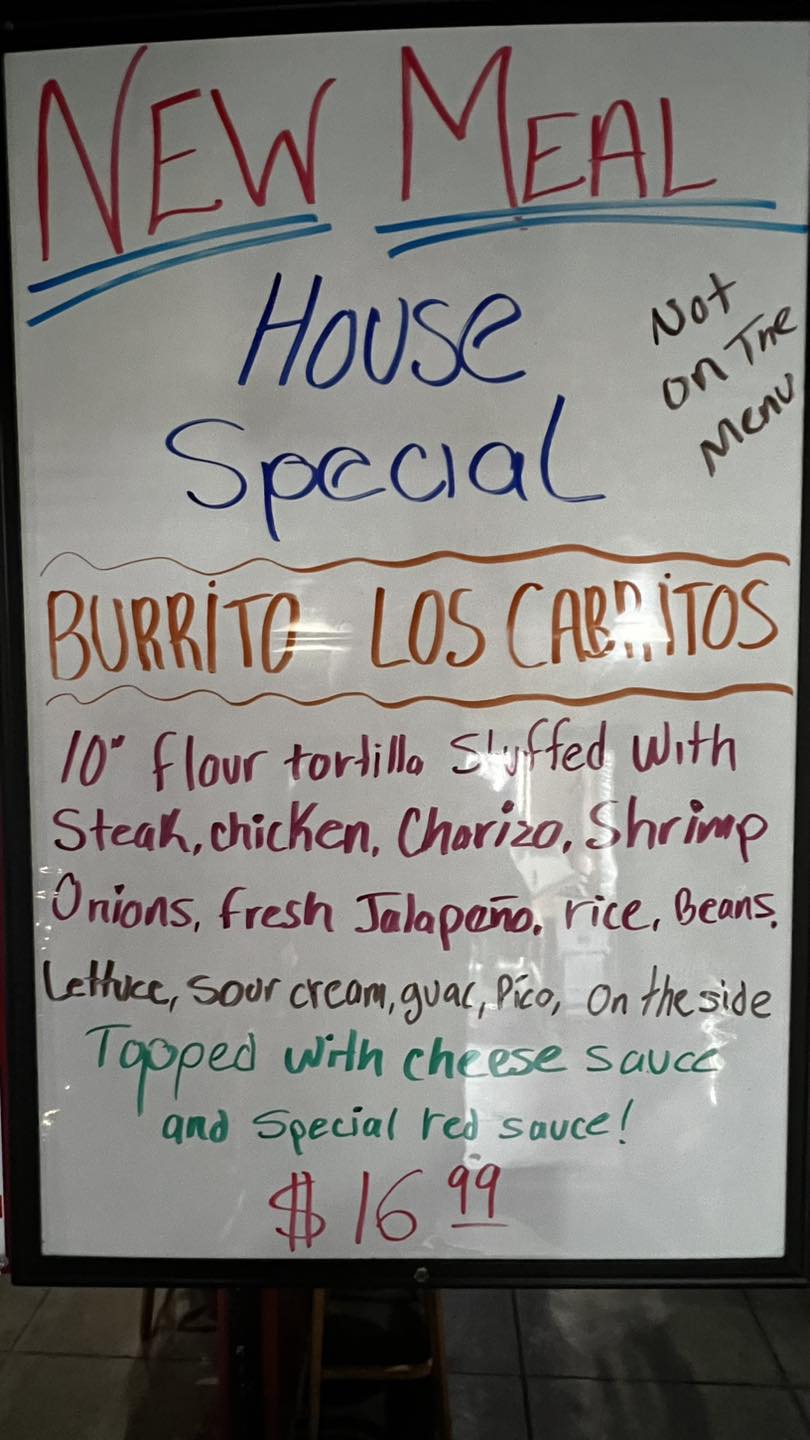 NEW MEAL
House
Special
Not
on The
Menu
BURRITO LOS CABRITOS
10" flour tortilla Stuffed with
Steak, chicken, Chorizo, Shrimp
Onions, fresh Jalapeño, rice, Beans,
Lettuce, Sour cream, guac, Pico, on the side
Topped with cheese sauce
and special red sauce!
$16.99